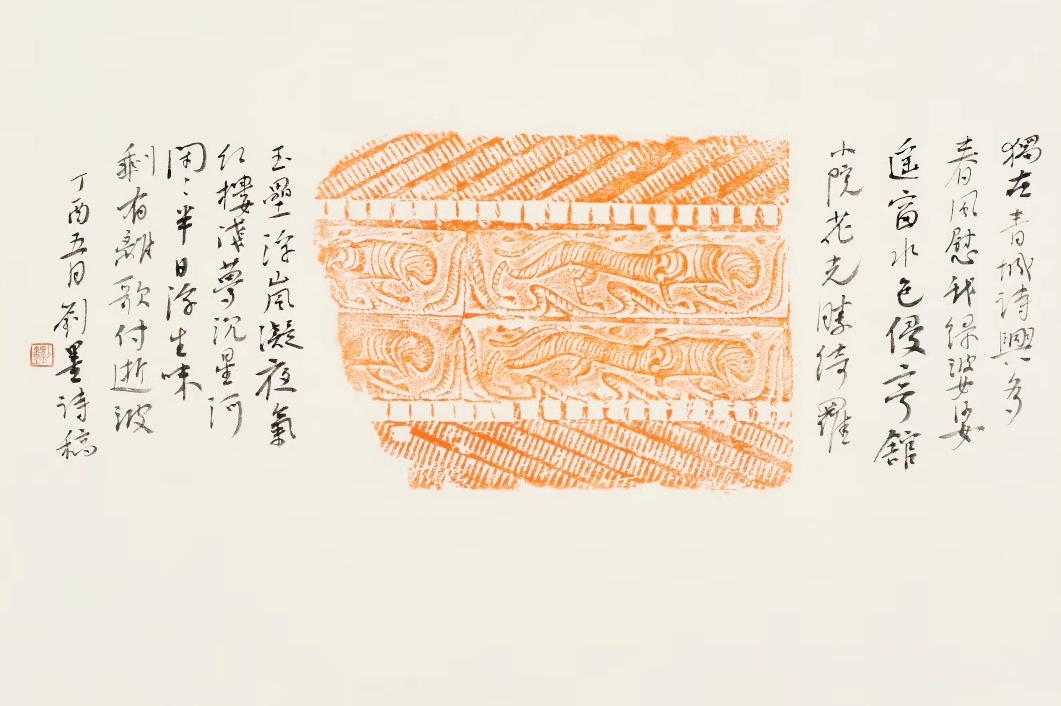 獨在青城詩興多
春風慰我綠婆娑
遙窗水色侵亭館
小院花光勝綺羅
玉壘浮嵐凝夜氣
紅樓淺夢沉星河
閑〻半日浮生味
剩有離歌付逝波
丁酉五月劉墨詩稿